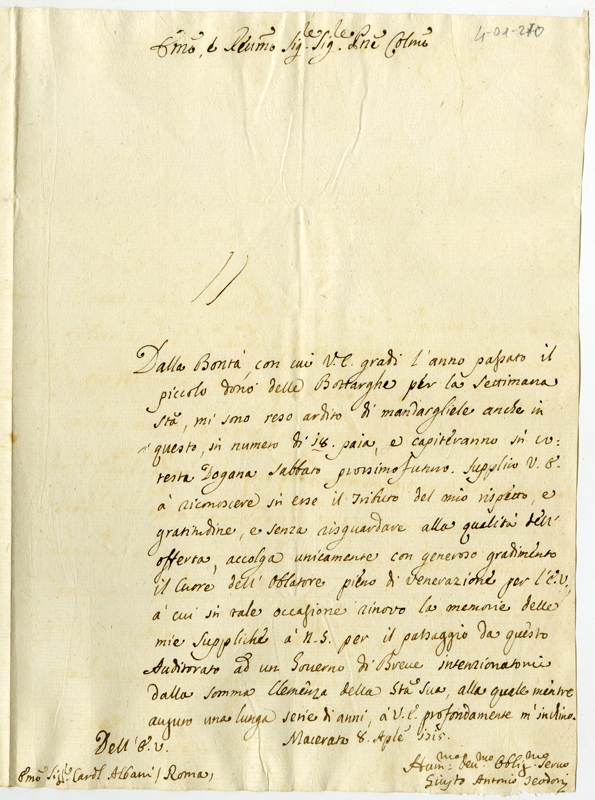 4-01-270
Em̃o, e Reum̃o Sig.le Sig.le Pñe Colm̃o
Dalla Bontà, con cui V.E. gradì l'anno passato il
piccolo dono delle Bottarghe per la Settimana
Stã, mi sono reso ardito di mandargliele anche in
questo, in numero di 18. paia, e capiteranno in co:
testa Dogana Sabbato prossimo futuro. Supplico V.E.
à riconoscere in esse il Tributo del mio rispetto, e
gratitudine, e senza risguardare alla qualità dell'
offerta, accolga unicamente con generoso gradimento
il Cuore dell'Oblatore pieno di venerazione per l'E.V.,
à cui in tale occasione rinovo la memorie delle
mie Suppliche à N.S. per il passaggio da questo
Auditorato ad un Governo di Breve intenzionatomi
dalla somma Clemenza della Stã Sua, alla quale mentre
auguro una lunga serie di anni, à V.E. profondamente m'inchino.
Macerata 8. Aple 1715.
Dell'E.V.
Em̃o Sig.le Cardl Albani / Roma /
Hum.mo Deu.mo Obblig.mo Servo
Giusto Antonio Teodorj